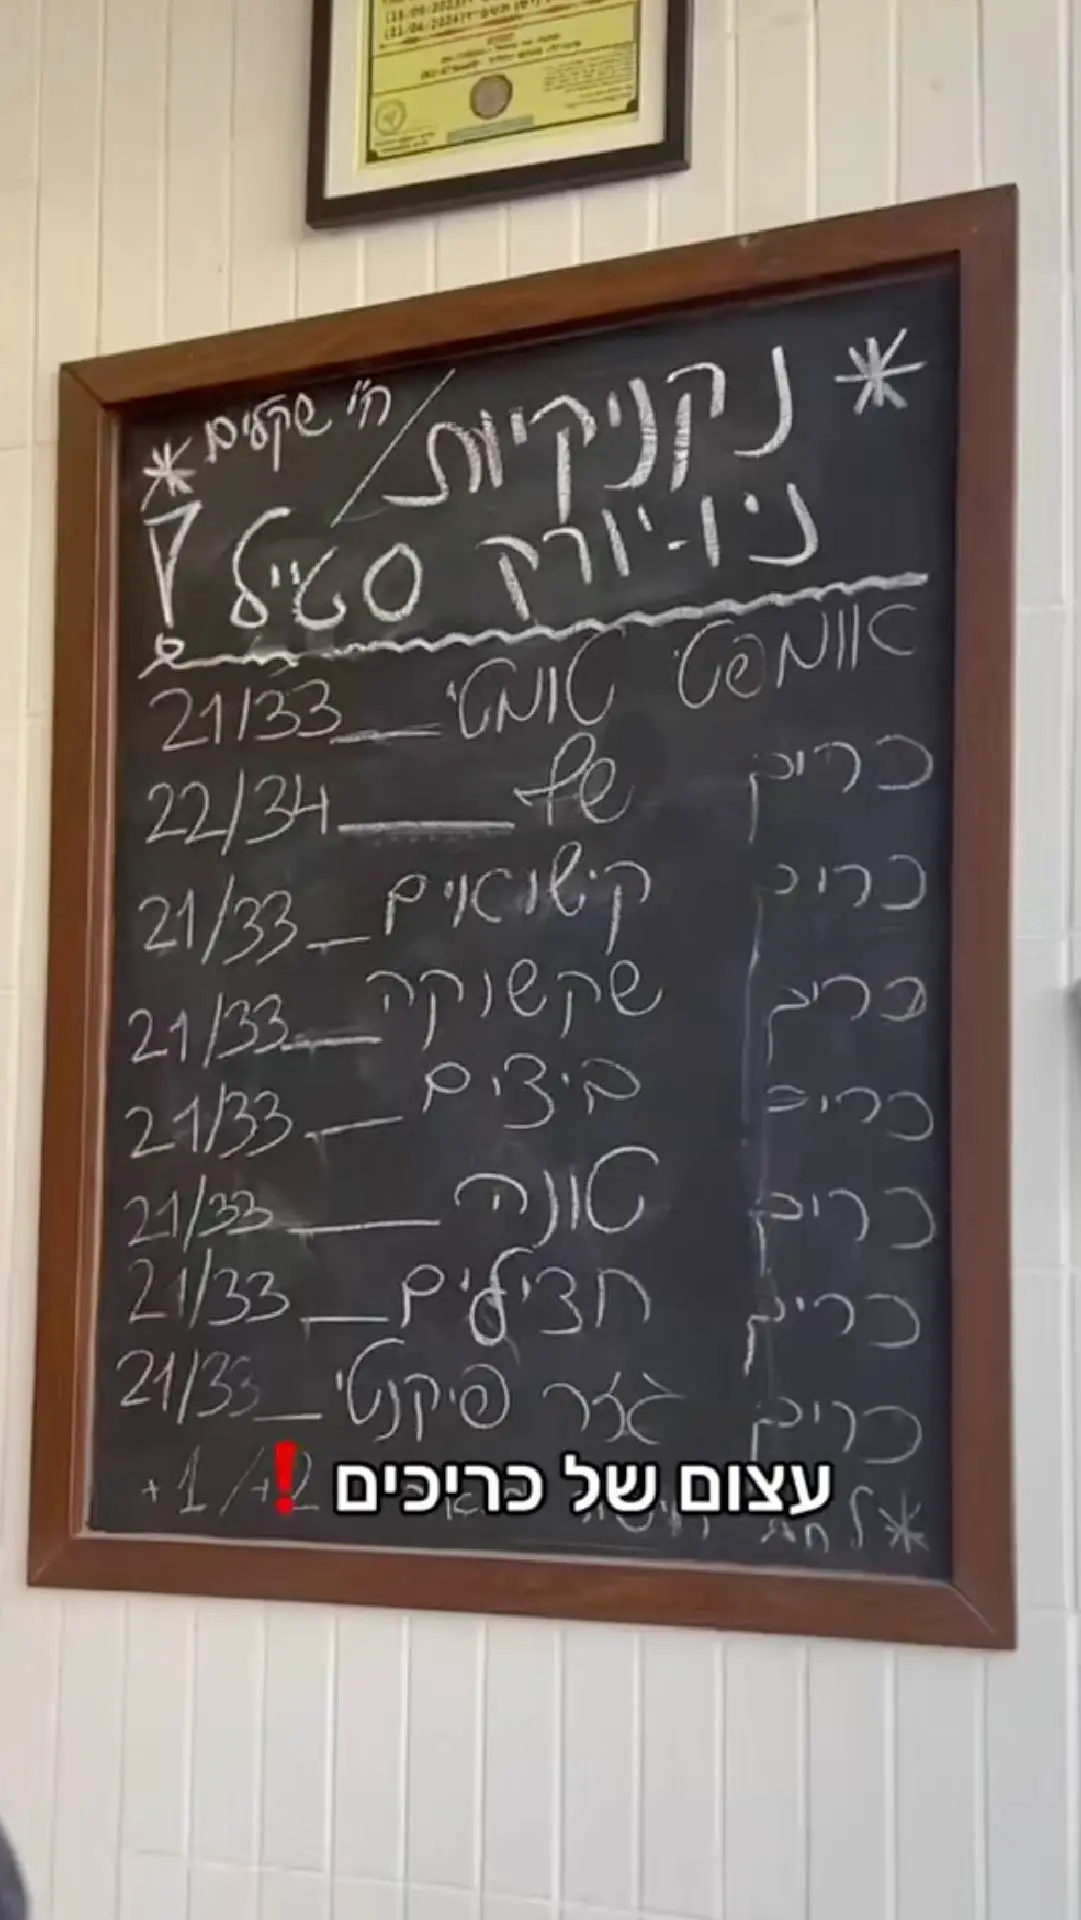 * נקניקיות / ח"י שקלים *
ניו-יורק סטייל
אוומפטי טומטי 21/33
כריך שף 22/34
כריך קישואים 21/33
כריך שקשוקה 21/33
כריך ביצים 21/33
כריך טונה 21/33
כריך חצילים 21/33
כריך גזר פיקנטי 21/33
עצום של כריכים❗